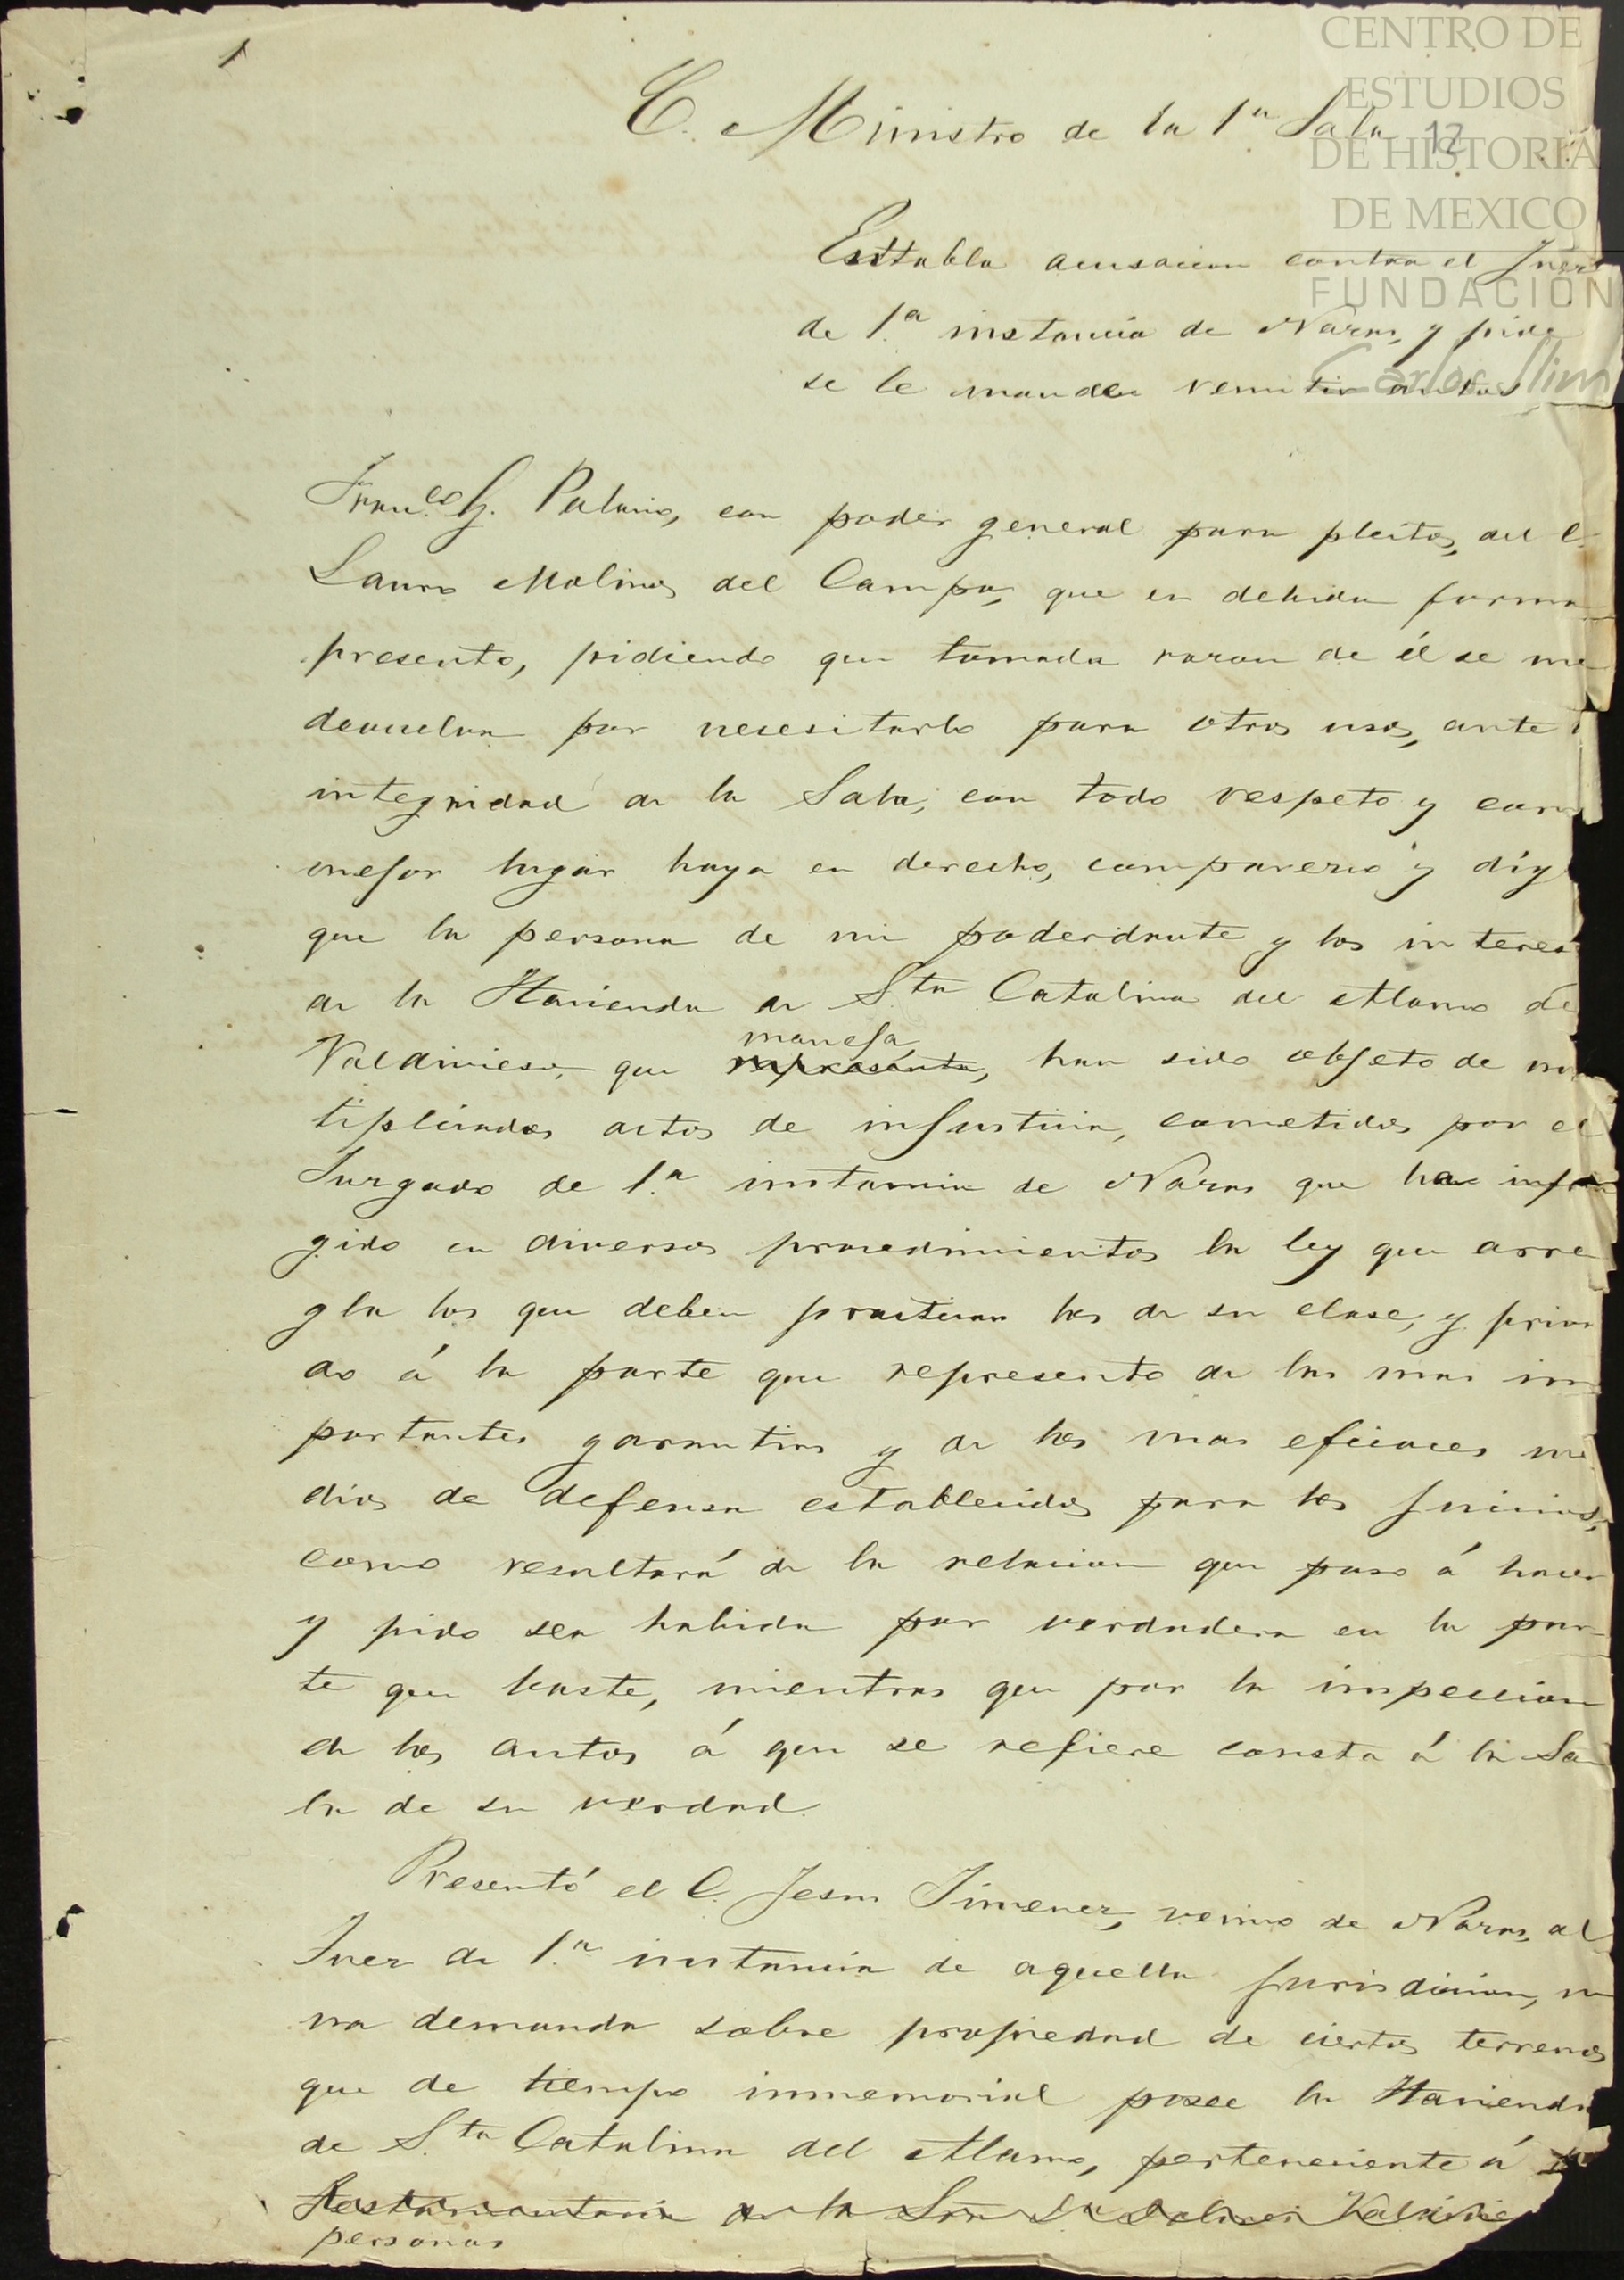 1
CENTRO DE
ESTUDIOS
DE HISTORIA
DE MEXICO
FUNDACIÓN
Carlos Slim
C. Ministro de la 1.a Sala
12
Esttabla acusacion contra el Juez
de 1.a instancia de Nazas, y pide
se le manden remitir autos
Franco. G. Palacio, con poder general para pleitos, del C.
Lauro Molinos del Campo, que en debida forma
presento, pidiendo que tomada razon de él se me
devuelva por necesitarlo para otros usos, ante
integridad de la Sala, con todo respeto y como
mejor lugar haya en derecho, comparezco y dig
que la persona de mi poderdante y los interes
de la Hacienda de S.ta Catalina del Alamo de
manefa
Valdivieso, que represento, han sido objeto de mu
tiplicados actos de injusticia, cometidos por el
Juzgado de 1.a instancia de Nazas que ha infrin
gido en diversos procedimientos la ley que arre
gla los que deben practicar los de su clase, y priva
do á la parte que represento de las mas im
portantes garantias y de los mas eficaces me
dios de defensa establecidos para los juicios,
como resultará de la relacion que paso á hacer
y pido sea habida por verdadera en la par
te que baste, mientras que por la inspeccion
de los autos á que se refiere consta á la Sa
la de su verdad.
Presentó el C. Jesus Jimenez, vecino de Nazas, al
Juez de 1.a instancia de aquella jurisdiccion, u
na demanda sobre propiedad de ciertos terrenos
que de tiempo inmemorial posee la Hacienda
de S.ta Catalina del Alamo, perteneciente á la
Testamentaria de la Sra Da Dolores Valdivie
personas